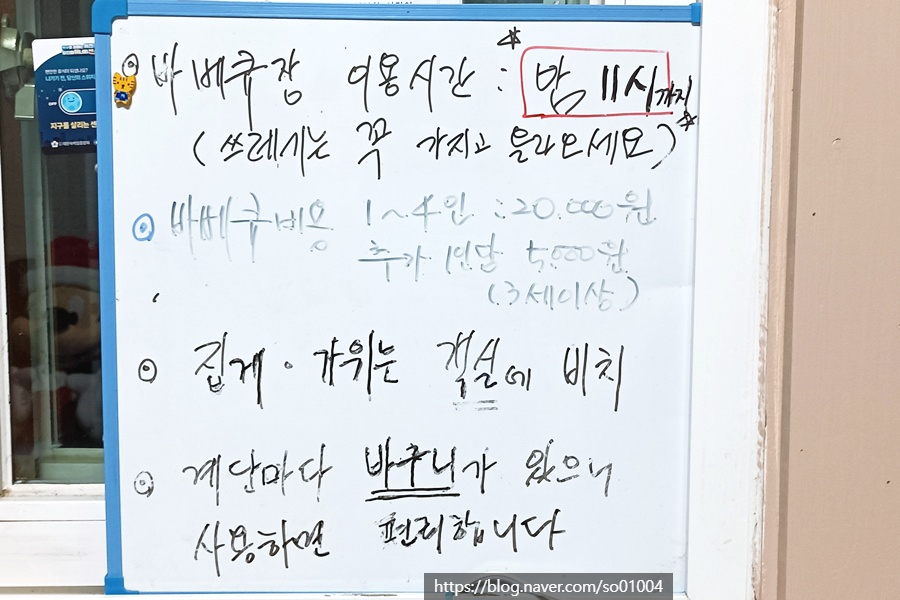 바베큐장 이용시간 : 밤 11시까지
(쓰레기는 꼭 가지고 올라오세요)
바베큐비용 1~4인 : 20.000원
추가 1인당 5,000원
(3세이상)
집게 · 가위는 객실에 비치
계단마다 바구니가 있으니
사용하면 편리합니다
지구를 살리는 센
https://blog.naver.com/so01004